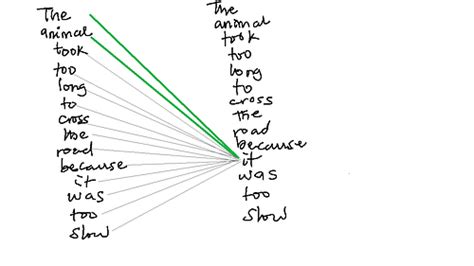 The
animal
took
too
long
to
cross
the
road
because
it
was
too
slow
The
animal
took
too
long
to
cross
the
road
because
it
was
too
slow